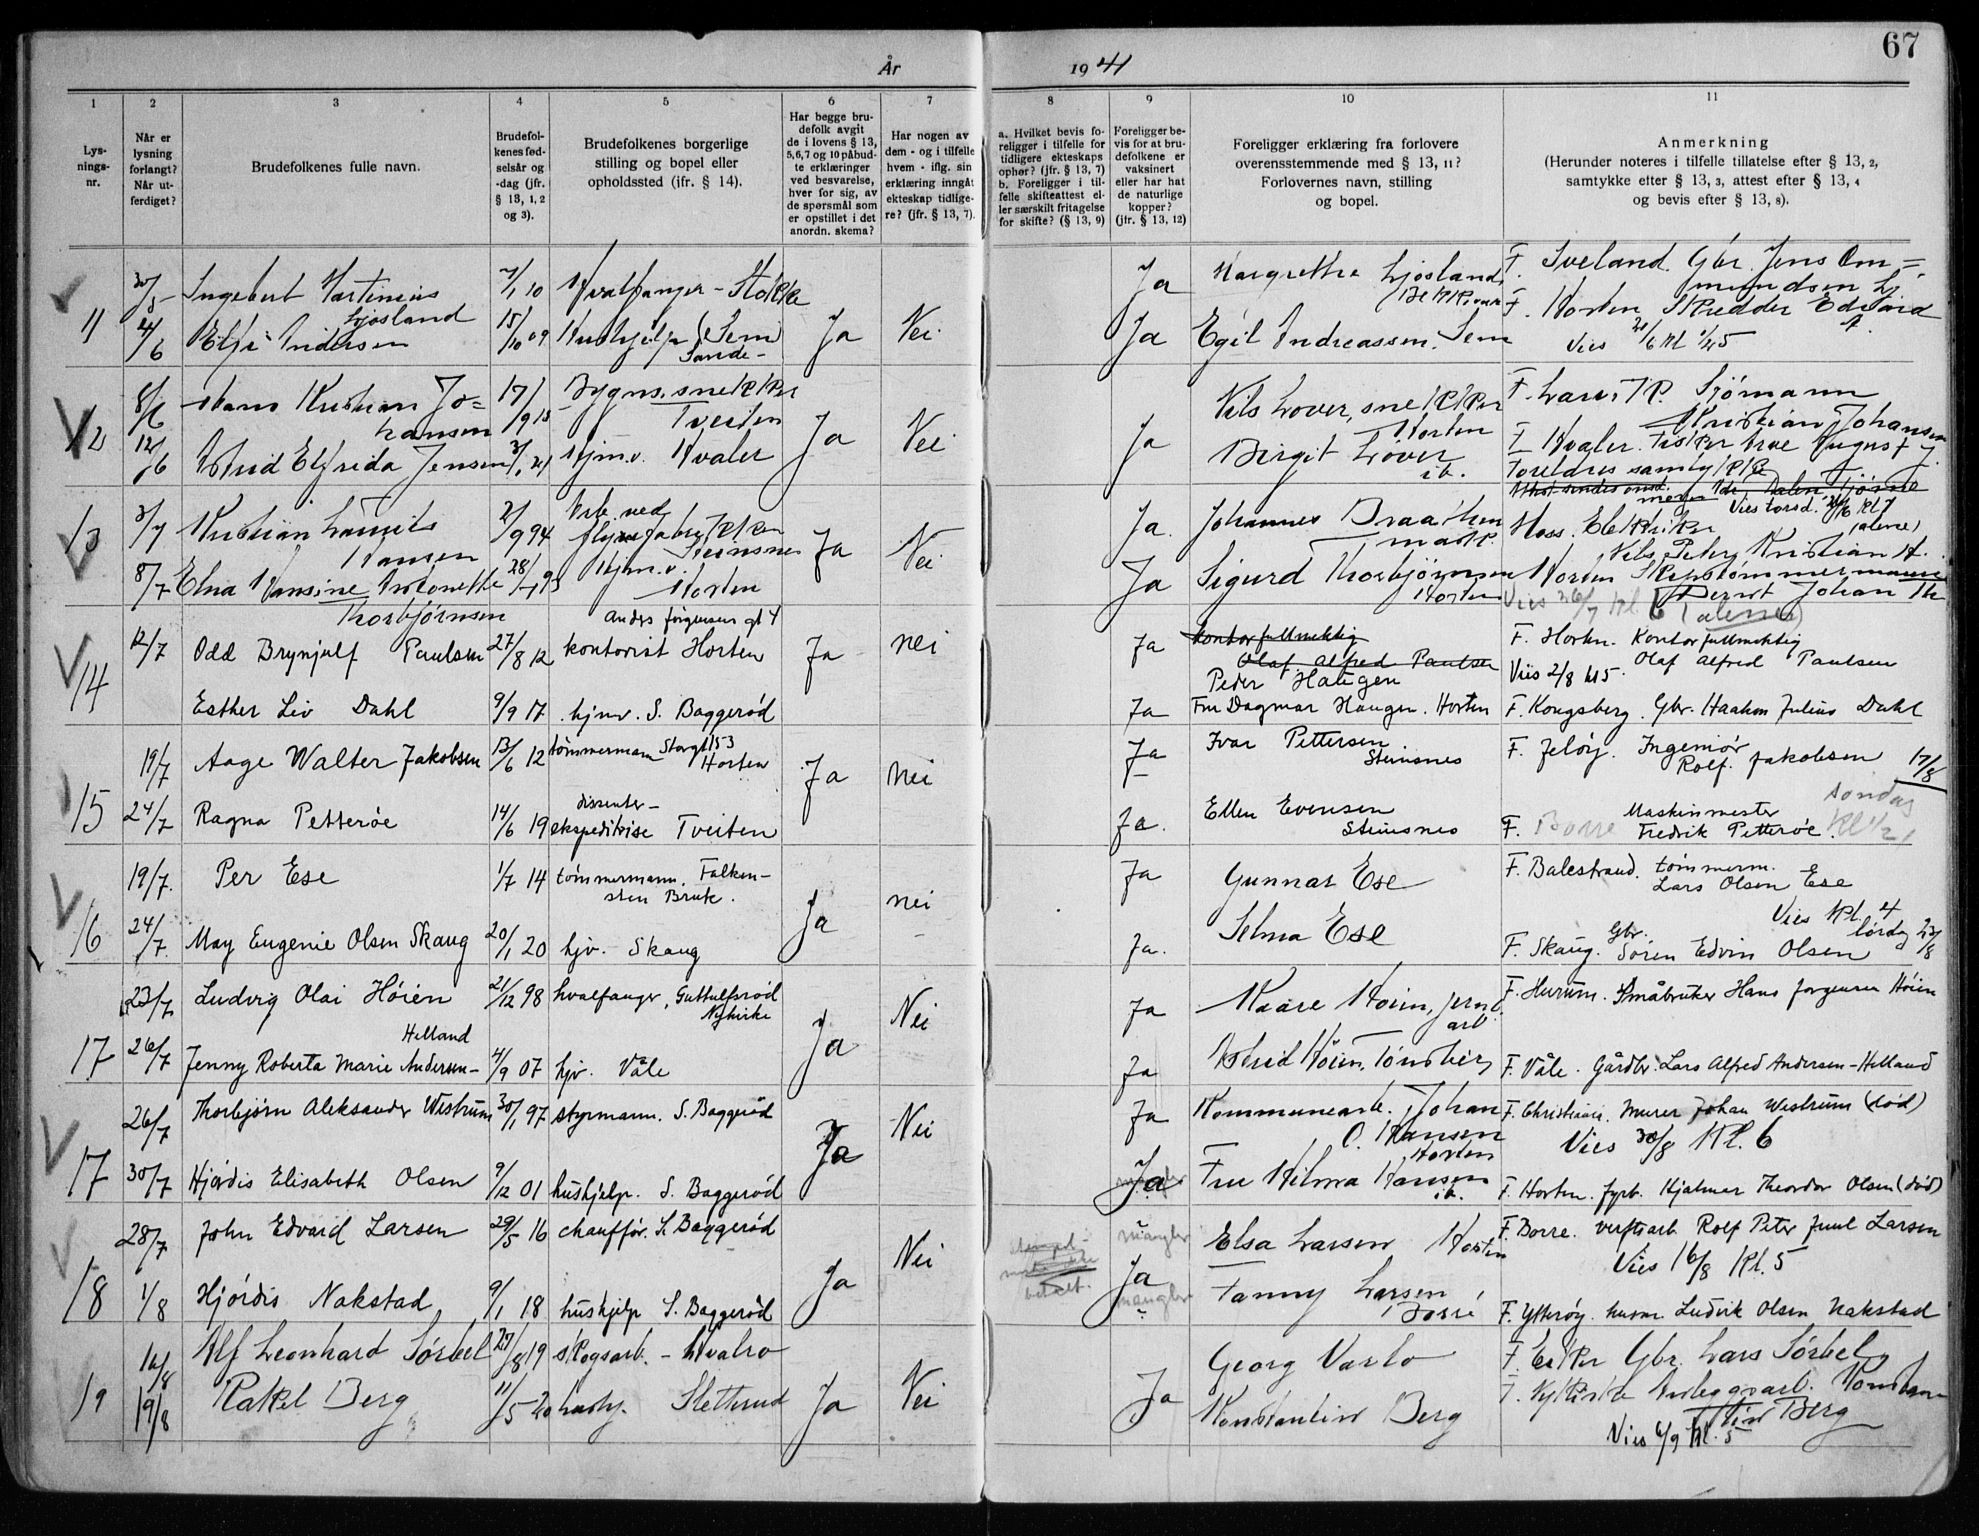 67
År 1941
1
2
3
4
5
6
7
8
9
10
11
Lysnings-
nr.
Når er
lysning
forlangt?
Når ut-
ferdiget?
Brudefolkenes fulle navn.
Brudefol-
kenes fød-
selsår og
-dag (jfr.
§ 13, 1, 2
og 3).
Brudefolkenes borgerlige
stilling og bopel eller
opholdssted (ifr. § 14).
Har begge bru-
defolk avgit
de i lovens § 13,
5, 6, 7 og 10 påbud-
te erklæringer
ved besvarelse,
hver for sig, av
de spørsmål som
er opstillet i det
anordn. skema?
Har nogen av
dem - og i tilfelle
hvem - iflg. sin
erklæring inngått
ekteskap tidlige-
re? (jfr. § 13, 7).
a. Hvilket bevis fo-
religger i tilfelle for
tidligere ekteskaps
ophør? (jfr. § 13, 7)
b. Foreligger i til-
felle skifteattest el-
ler særskilt fritagelse
for skifte? (§ 13, 9)
Foreligger be-
vis for at bru-
defolkene er
vaksinert
eller har hat
de naturlige
kopper?
(jfr. § 13, 12)
Foreligger erklæring fra forlovere
overensstemmende med § 13, 11?
Forlovernes navn, stilling
og bopel.
Anmerkning
(Herunder noteres i tilfelle tillatelse efter § 13, 2,
samtykke efter § 13, 3, attest efter § 13, 4
og bevis efter § 13, 8).
11 30/5 Ingebert Martinius Ljosland 7/1 10 Hvalfanger - Stokke Ja Margrethe Ljosland F. Sveland. Gbr. Jens Om=
mundsen Lj.
4/6 Elfi Andersen 15/10 09 Hushjelp Sem Ja Nei Ja Egil Andreassen. Sem F. Horten Skredder Edvard A.
Sande-
Vies 21/6 kl 1/45
12 8/6 Hans Kristian Jo=
hansen 17/9 15 Bygns. snekker
Tveiten Ja Nei Nils Lover, snekker
Horten F. Larvik. Sjömann
Kristian Johansen
12/6 Astrid Elfrida Jensen 3/1 21 Hjm.v. Hvaler Ja Birgit Lover
ib. F. Hvaler. Fisker August J.
Foreldres samtykke
13 3/7 Kristian Lauritz
Hansen 2/9 94 Arb. ved
Ja Nei Ja. Johannes Braathen Moss. Elektriker
Nils Peter Kristian H.
8/7 Elna Hansine Antonette
Thorbjørnsen 28/7 95 Hjm.v.
Horten Ja Sigurd Thorbjörnsen
Horten Horten Skipstömmermann
Bernt Johan Th
Vies 26/7 kl. 6 (alene)
14 12/7 Odd Brynjulf Paulsen 27/8 12 Anders Jørgensens gt 4
kontorist Horten Ja nei Ja kontorfullmektig
Olaf Alfred Paulsen
Peder Haugen F. Horten. Kontorfullmektig
Olaf Alfred Paulsen
Vies 2/8 kl 5.
Esther Liv Dahl 9/9 17 hjmv. S. Baggerød Ja Fru Dagmar Haugen. Horten F. Kongsberg. Gbr. Haakon Julius Dahl
15 19/7 Aage Walter Jakobsen 13/6 12 tømmermann Storgt 53
Horten Ja nei Ja Ivar Pettersen
Steinsnes F. Jeløy. Ingeniør
Rolf. Jakobsen 17/8
24/7 Ragna Petterøe 14/6 19 dissenter-
ekspeditrise Tveiten Ja. Ellen Evensen
Steinsnes F. Borre Maskinmester
Fredrik Petterøe.
søndag
Kl 1/2 1
16 19/7. Per Ese 1/7 14 tømmermann. Falken-
sten Bruk. Ja nei Ja Gunnar Ese F. Balestrand. tømmerm.
Lars Olsen Ese
24/7. May Eugenie Olsen Skaug 20/1 20 hjv. Skaug Ja. Selma Ese Vies Kl. 4
lørdag 23/8
F. Skaug. Gbr. Søren Edvin Olsen
17 23/7 Ludvig Olai Höien 21/12 98 hvalfanger, Guttulfsrød
Nykirke Ja Nei Ja Kaare Höien, jernb.
arb. F. Hurum. Småbruker Hans Jørgensen Höien
26/7 Jenny Roberta Marie Andersen-
Helland 4/9 07 hjv. Våle Ja Astrid Höien, Tönsberg F. Våle. Gårdbr. Lars Alfred Andersen-Helland
17 26/7 Thorbjørn Aleksander Westrum 30/1 97 styrmann. S. Baggerød Ja Nei Ja Kommunearb. Johan
O. Hansen
Horten F. Christiania. Murer Johan Westrum (død)
Vies 30/8 Kl. 6
30/7 Hjørdis Elisabeth Olsen 9/12 01 hushjelp. S. Baggerød Ja Fru Hilma Hansen
ib. F. Horten. fyrb. Hjalmar Theodor Olsen (død)
18 28/7 John Edvard Larsen 29/5 16 chauffør. S. Baggerød Ja Nei mangler Elsa Larsen Horten F. Borre. verftsarb. Rolf Peter Juul Larsen
Vies 16/8 Kl. 5
1/8 Hjórdis Nakstad 9/1 18 hushjelp S. Baggerød Ja
mangler Fanny Larsen
Borre F. Ytterøy. husm. Ludvik Olsen Nakstad
19 16/8 Alf Leonhard Sörbel 29/8 19 skogsarb. - Hvalro Ja Nei Ja Georg Varlo Gbr. Lars Sörbel
19/8 Rakel Berg 11/5 20 hushj. Sletterud Konstantin Berg F. Nykirke Anleggsarb. Konstan
tin Berg
Vies 6/9 kl. 5